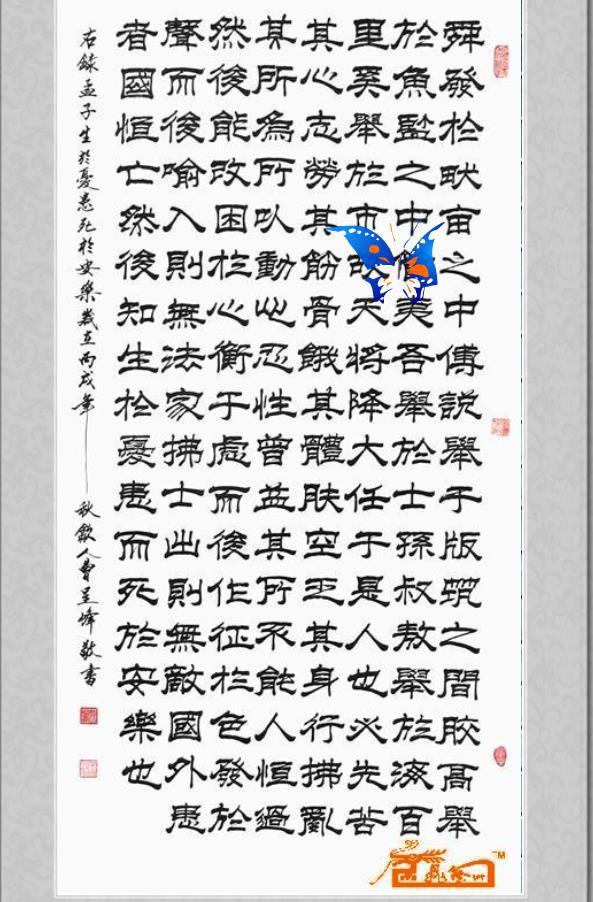 舜發於畎亩之中傅說舉于版筑之間胶高舉
於魚監之中管夷吾舉於士孫叔敖舉於海百
里奚舉於市故天將降大任于是人也必先苦
其心志勞其筋骨餓其體肤空乏其身行拂亂
其所為所以動心忍性曾益其所不能人恒過
然後能改困於心衡于慮而後作征於色發於
聲而後喻入則無法家拂士出則無敵國外患
者國恒亡然後知生於憂患而死於安樂也
右錄孟子生於憂患死於安樂歲在丙戌年秋歙人曹呈峰敬書